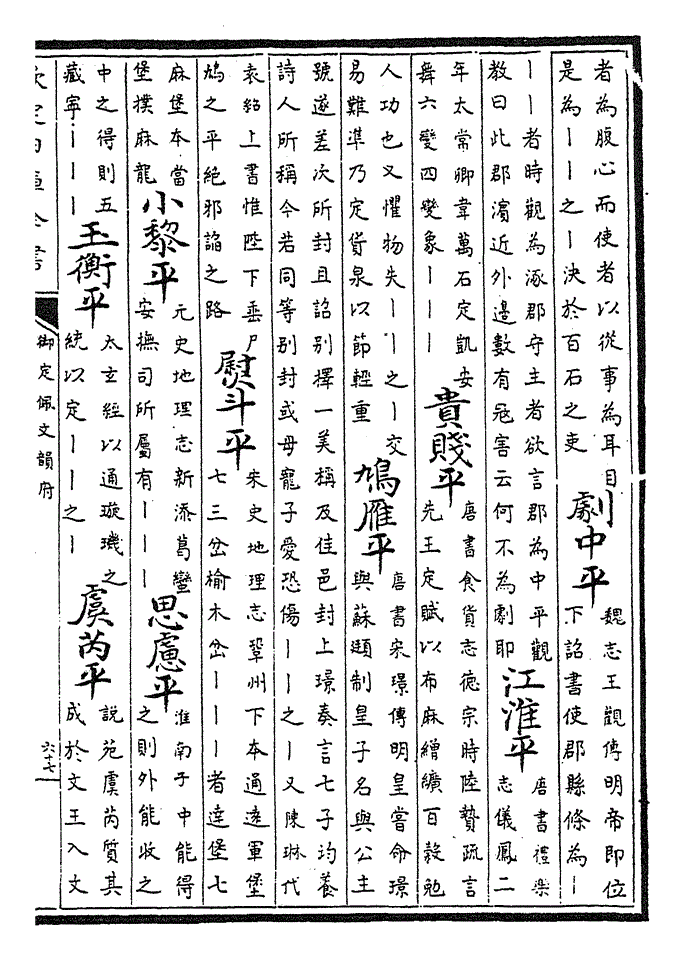 者為腹心而使者以從事為耳目
是為｜｜之｜決於百石之吏
劇中平
魏志王觀傳明帝即位
下詔書使郡縣條為｜
｜｜者時觀為涿郡守主者欲言郡為中平觀
教曰此郡濱近外邊數有寇害云何不為劇耶
江淮平
唐書禮樂
志儀鳳二
年太常卿韋萬石定凱安
舞六變四變象｜｜｜
貴賤平
唐書食貨志德宗時陸贄疏言
先王定賦以布麻繒纊百穀勉
人功也又懼物失｜｜之｜交
易難準乃定貨泉以節輕重
鳩雁平
唐書宋璟傳明皇嘗命璟
與蘇頲制皇子名與公主
號遂差次所封且詔別擇一美稱及佳邑封上璟奏言七子均養
詩人所稱今若同等別封或母寵子愛恐傷｜｜之｜又陳琳代
袁紹上書惟陛下垂尸
鳩之平絕邪諂之路
熨斗平
宋史地理志鞏州下本通遠軍堡
七三岔榆木岔｜｜｜者達堡七
麻堡本當
堡撲麻龍
小黎平
元史地理志新添葛蠻
安撫司所屬有｜｜｜
思慮平
淮南子中能得
之則外能收之
中之得則五
藏寧｜｜｜
玉衡平
太玄經以通璇璣之
統以定｜｜之｜
虞芮平
說苑虞芮質其
成於文王入文
欽定四庫全書
御定佩文韻府
六十七